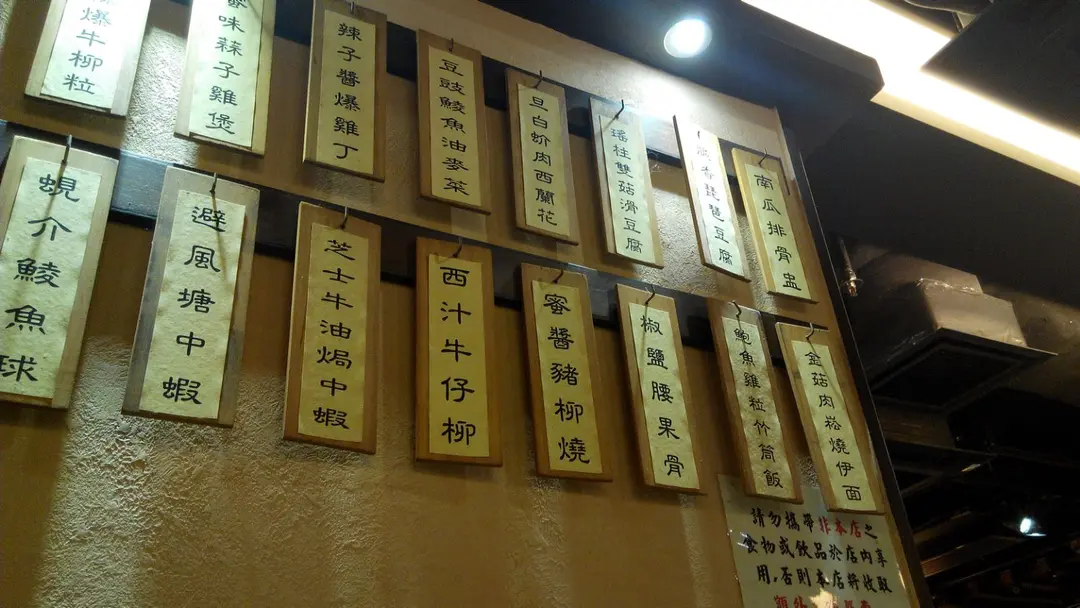 爆牛柳粒
味蒜子雞煲
辣子醬爆雞丁
豆豉鯪魚油麥菜
旦白蚧肉西蘭花
瑤柱雙菇滑豆腐
琵琶豆腐
南瓜排骨盅
蜆介鯪魚球
避風塘中蝦
芝士牛油焗中蝦
西汁牛仔柳
蜜醬豬柳燒
椒鹽腰果骨
鮑魚雞粒竹筒飯
金菇肉崧燒伊面
請勿攜帶非本店之
食物或飲品於店內享
用,否則本店將收取